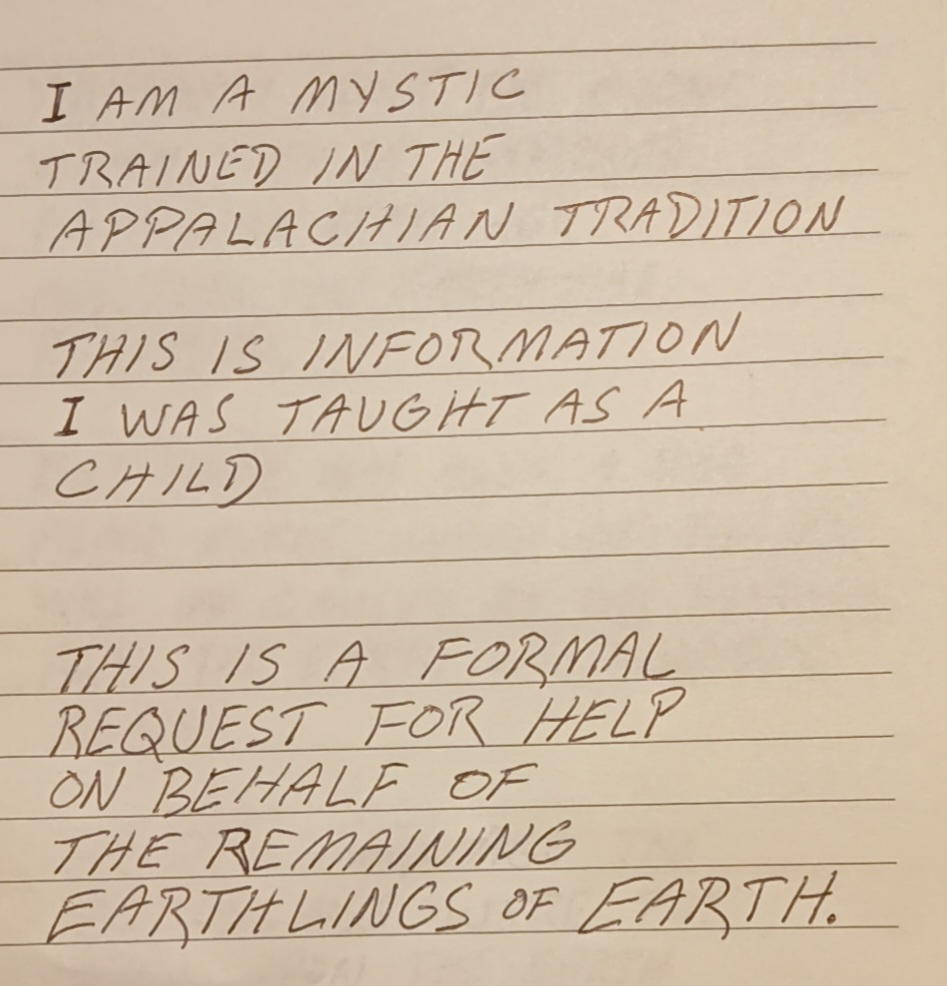 I AM A MYSTIC
TRAINED IN THE
APPALACHIAN TRADITION
THIS IS INFORMATION
I WAS TAUGHT AS A
CHILD
THIS IS A FORMAL
REQUEST FOR HELP
ON BEHALF OF
THE REMAINING
EARTHLINGS OF EARTH.